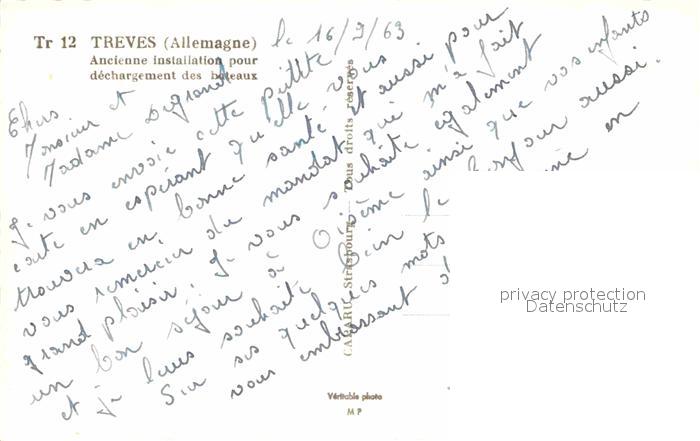 Tr 12 TREVES (Allemagne)
Ancienne installation pour
déchargement des bateaux
le 16/9/63
Chers
Monsieur et
Madame Degrand
Je vous envoie cette petite
carte en espérant qu'elle vous
trouvera en bonne santé et aussi pour
vous remercier du mandat qui m'a fait
grand plaisir. Je vous souhaite également
un bon séjour à ainsi que vos enfants
et je leurs souhaite bien le bonjour aussi.
Sur ses quelques mots en
vous embrassant
CAP Strasbourg — Tous droits réservés
Véritable photo
M P
privacy protection
Datenschutz